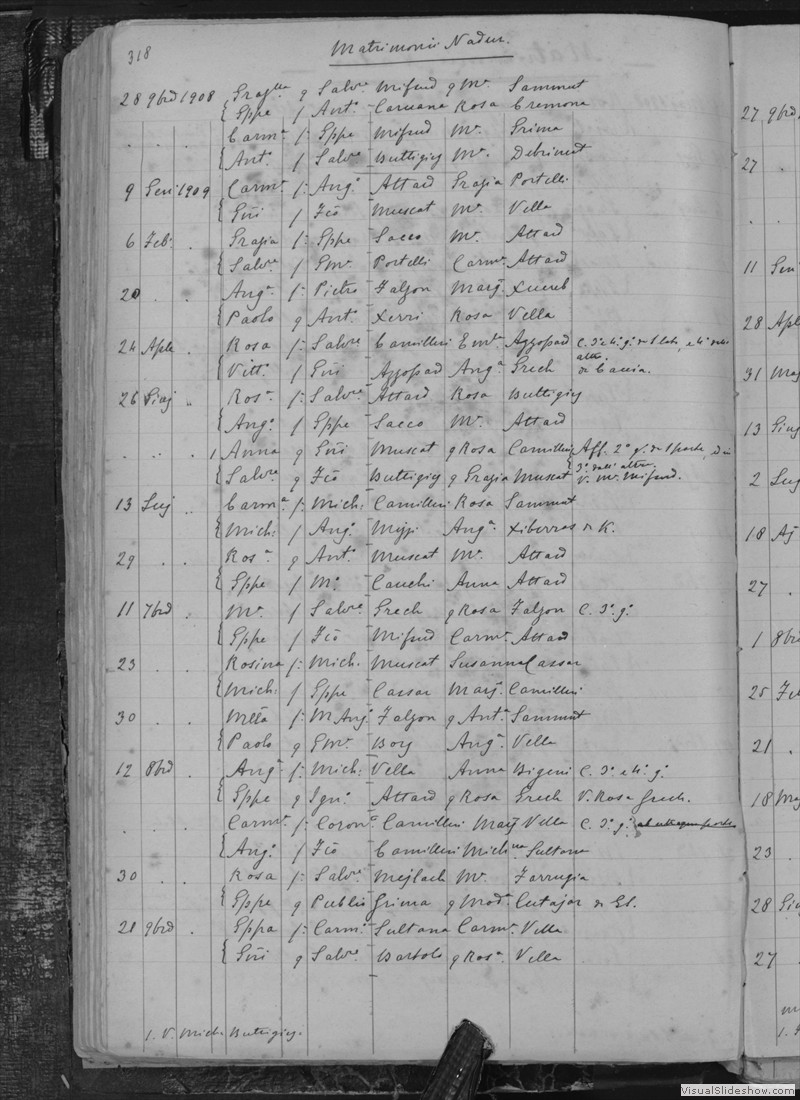 318
Matrimonii Nadur.
28 9brd 1908 Graz^lla q Salv^re Mifsud q M^a Sammut
Gppe f Ant^o Caruana Rosa Cremona
. . . Carm^a f: Gppe Mifsud M^a Grima
Ant^o f Salv^re Buttigieg M^a Debrincat
9 Gen 1909 Carm^a f: Ang^o Attard Grazia Portelli
Giri f Fco Muscat M^a Vella
6 Feb^o . Grazia f: Gppe Sacco M^a Attard
Salv^re f Gm^a Portelli Carm^a Attard
20 . . Ang^a f: Pietro Falzon Marj Xuereb
Paolo q Ant^o Xerri Rosa Vella
24 Aple . Rosa f: Salv^re Camilleri Em^a Azzopard C. 3° e 4° g. da 1 lato, e 4° dall'
altro.
Vitt^o f Giri Azzopard Ang^a Grech di Caccia.
26 Giug . Ros^a f: Salv^re Attard Rosa Buttigieg
Ang^o f Gppe Sacco M^a Attard
. . . 1 Anna q Giri Muscat q Rosa Camilleri Aff. 2° g. da 1 parte, e di
3° dall' altra.
Salv^re q Fco Buttigieg q Grazia Muscat V. M^a Mifsud.
13 Lug .. Carm^a f: Mich: Camilleri Rosa Sammut
Mich: f Ang^o Mizzi Ang^a Xiberras di K.
29 . . Ros^a q Ant^o Muscat M^a Attard
Gppe f M^o Cauchi Anna Attard
11 7brd . M^a f Salv^re Grech q Rosa Falzon C. 3° g.
Gppe f Fco Mifsud Carm^a Attard
23 . . Rosina f: Mich. Muscat Susanna Cassar
Mich: f Gppe Cassar Marj Camilleri
30 . . f: M Ang^o Falzon q Ant^a Sammut
Paolo q Gm^a Borg Ang^a Vella
12 8brd . Ang^a f: Mich: Vella Anna Bigeni C. 3° e 4° g.
Gppe q Ign^o Attard q Rosa Grech V. Rosa Grech.
. . . Carm^a f: Coron^o Camilleri Marj Vella C. 3° g.
Ang^o f Fco Camilleri Mich^na Sultana
30 . . Rosa f: Salv^re Mejlach M^a Farrugia
Gppe q Publio Grima q Mod^a Cutajar di Gl.
21 9brd . Gppa f: Carm^o Sultana Carm^a Vella
Giri q Salv^re Bartolo q Ros^a Vella
1. V. Mich. Buttigieg.
27 9brd
27 .
. .
11 Gen
28 Aple
31 Mag
13 Giug
2 Lug
18 Ag
27 .
1 8brd
25 Feb
21 .
18 Mag
23 .
28 Giu
27 .
VisualSlideshow.com